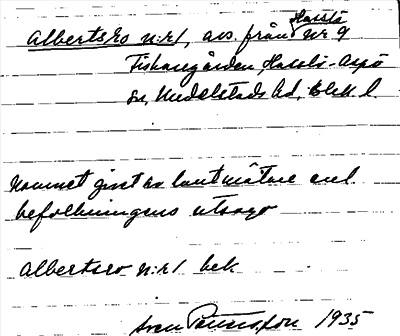 Hasslö
Albertsro n:r 1, avs. från Nr 9
Fiskaregården, Hasslö-Aspö
sn, Medelstads hd, Blek. l.
Namnet givet av lantmätare enl
befolkningens utsago
Albertsro n:r 1 bek
Sven 1935